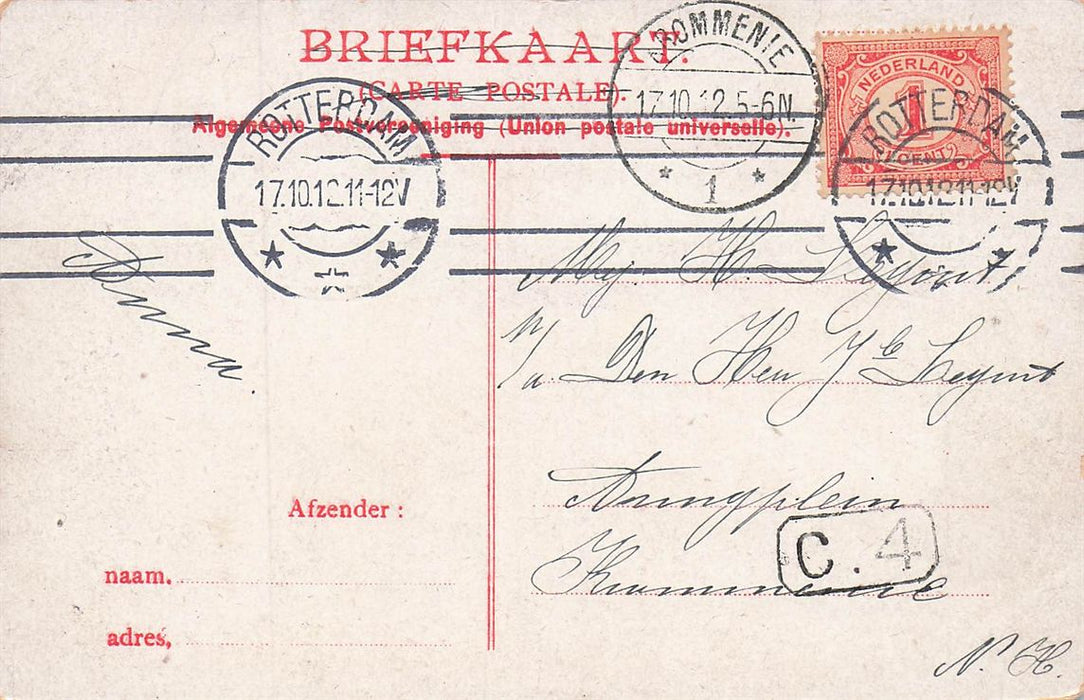 BRIEFKAART.
(CARTE POSTALE).
Algemeene Postvereeniging (Union postale universelle).
KROMMENIE
17.10.12.5-6N.
1
NEDERLAND
1
CENT
ROTTERDAM
17.10.12.11-12V
ROTTERDAM
17.10.12.11-12V
Anna.
Mej. H.
Den Heer
Krommenie
C. 4
N. H.
Afzender :
naam,
adres,